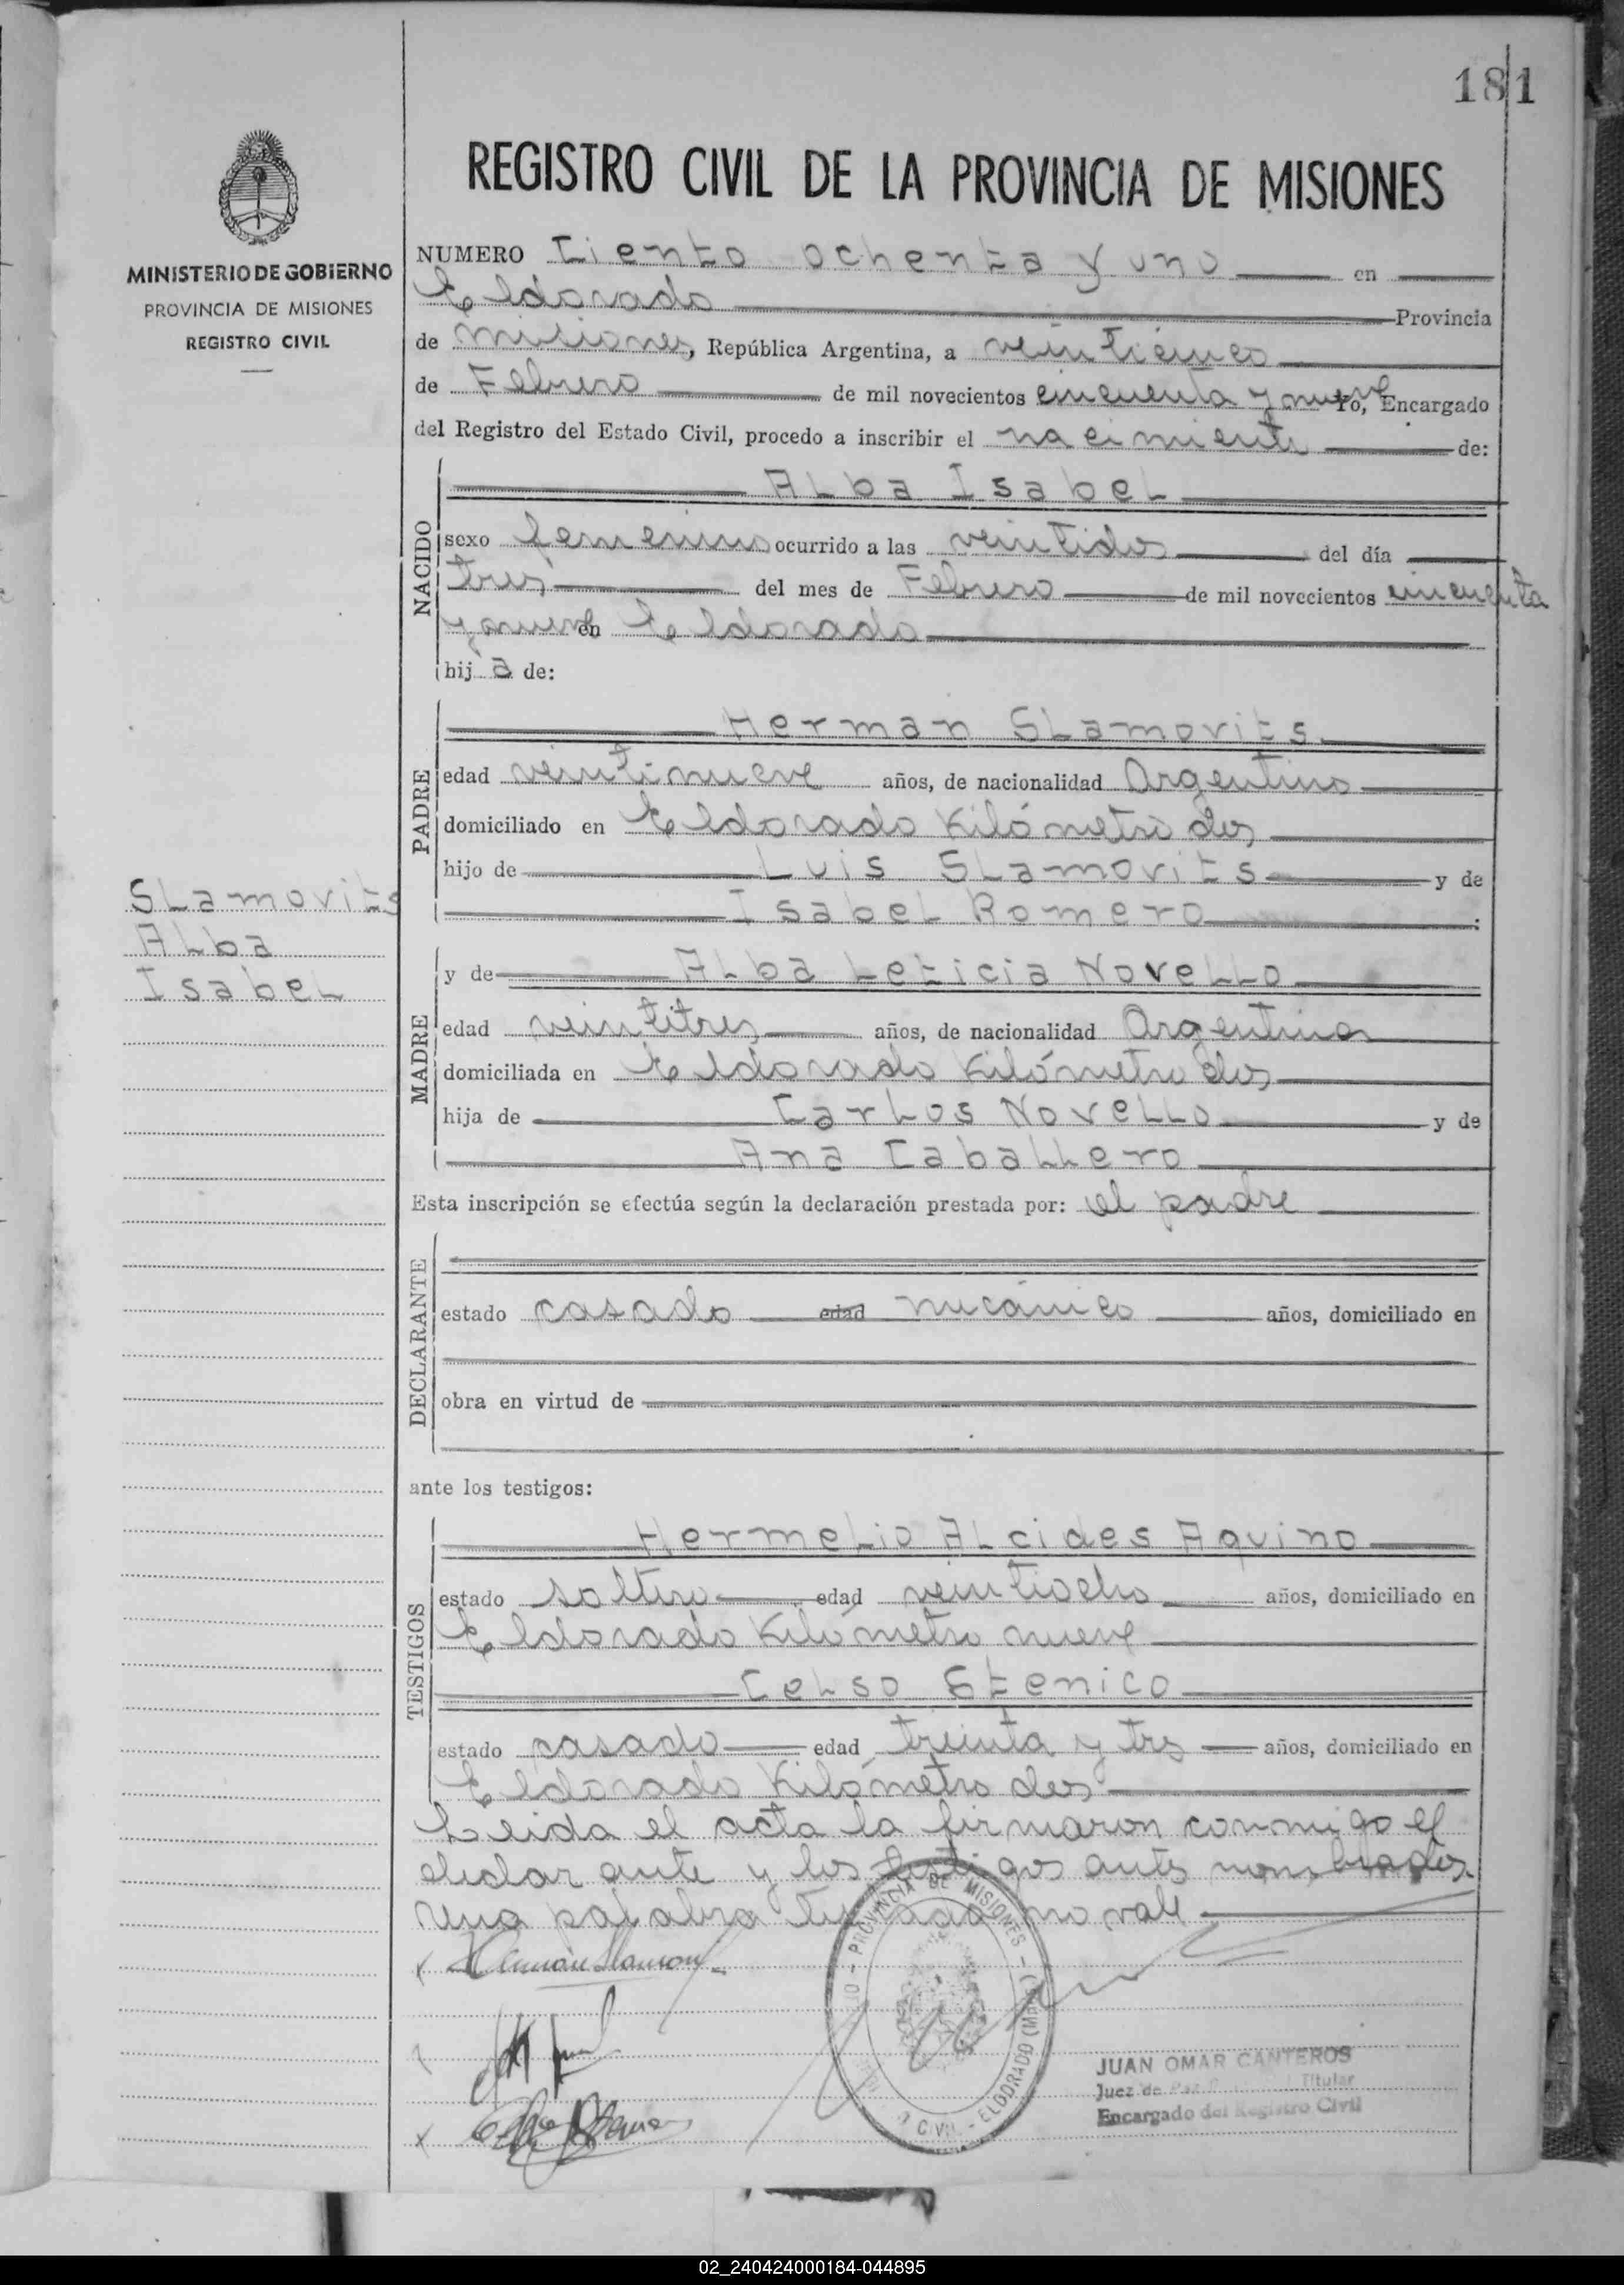 181
REGISTRO CIVIL DE LA PROVINCIA DE MISIONES
MINISTERIO DE GOBIERNO
PROVINCIA DE MISIONES
REGISTRO CIVIL
NUMERO Ciento ochenta y uno en
Eldorado Provincia
de Misiones, República Argentina, a veinticinco
de Febrero de mil novecientos cincuenta y nueve Yo, Encargado
del Registro del Estado Civil, procedo a inscribir el nacimiento de:
Alba Isabel
NACIDO
sexo femenino ocurrido a las veintidos del día
tres del mes de Febrero de mil novecientos cincuenta
y nueve en Eldorado
hij a de:
Herman Slamovits
PADRE
edad veintinueve años, de nacionalidad Argentino
domiciliado en Eldorado Kilómetro dos
hijo de Luis Slamovits y de
Isabel Romero
Slamovits
Alba
Isabel
y de Alba Leticia Novello
MADRE
edad veintitres años, de nacionalidad Argentina
domiciliada en Eldorado Kilómetro dos
hija de Carlos Novello y de
Ana Caballero
Esta inscripción se efectúa según la declaración prestada por: el padre
DECLARANTE
estado casado edad mecánico años, domiciliado en
obra en virtud de
ante los testigos:
Hermelio Alcides Aquino
TESTIGOS
estado soltero edad veintiocho años, domiciliado en
Eldorado Kilómetro nueve
Celso Stenico
estado casado edad treinta y tres años, domiciliado en
Eldorado Kilómetro dos
Leida el acta la firmaron conmigo el
declarante y los testigos antes nombrados
Una palabra testada no vale
PROVINCIA DE MISIONES
CIVIL - ELDORADO (MNES.)
JUAN OMAR CANTEROS
Juez de Paz Titular
Encargado del Registro Civil
02_240424000184-044895